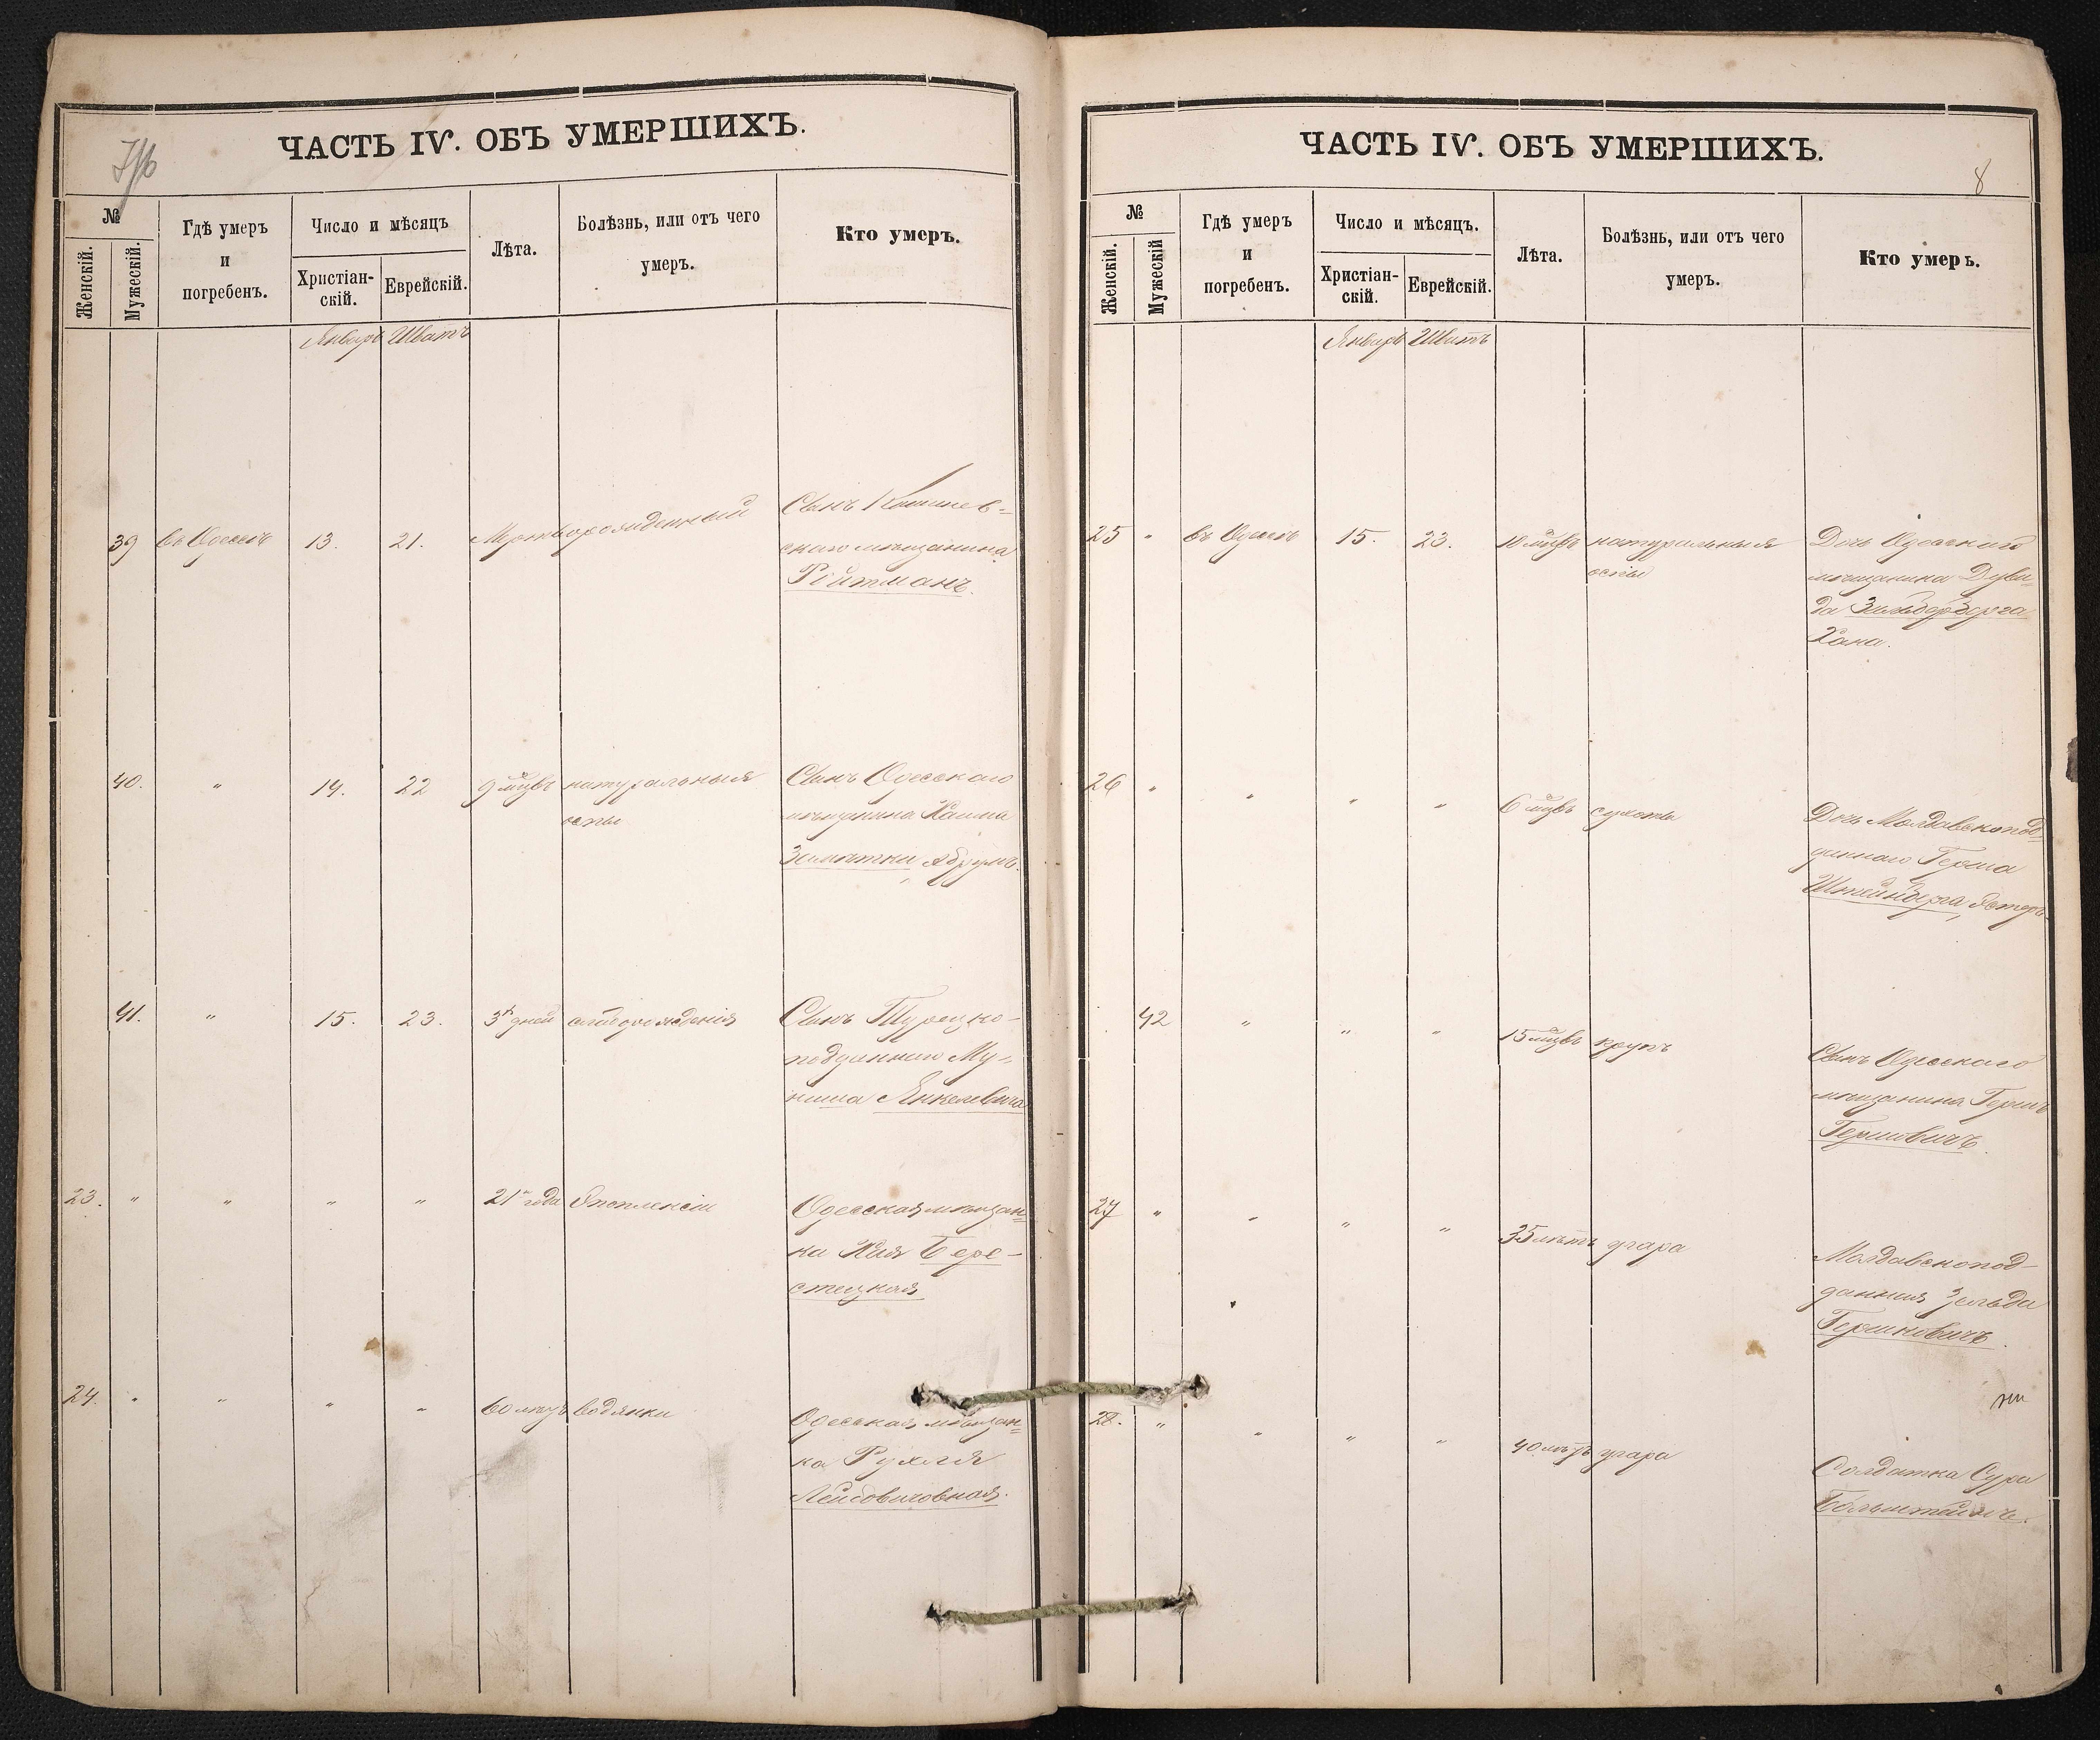 ЧАСТЬ IV. ОБЪ УМЕРШИХЪ.
№
Женскій.
Мужескій.
Гдѣ умеръ
и
погребенъ.
Число и мѣсяцъ
Христіан-
скій.
Еврейскій.
Лѣта.
Болѣзнь, или отъ чего
умеръ.
Кто умеръ.
Январь Шватъ
39 въ Одессѣ 13. 21. Мертворожденный Сынъ Кишинев=
скаго мѣщанина
Ройтманъ.
40. " 14. 22 9 мцвъ натуральныя Сынъ Одесскаго
оспы мѣщанина Хаима
Абрумъ.
41. " 15. 23. 3х дней слаборожденія Сынъ Турецко-
подданнаго Му-
ниша Янкелевича
23. " " " " 21 года Апоплексіи Одесская мѣщан=
ка Хая Бере-
стецкая
24. " " " " 60 лѣтъ водянки Одесская мѣщан=
ка Рухля
Лейбовичовная.
ЧАСТЬ IV. ОБЪ УМЕРШИХЪ.
8
№
Женскій.
Мужескій
Гдѣ умеръ
и
погребенъ.
Число и мѣсяцъ.
Христіан-
скій.
Еврейскій.
Лѣта.
Болѣзнь, или отъ чего
умеръ.
Кто умеръ.
Январь Шватъ
25 " въ Одессѣ 15. 23. 10 мцвъ натуральныя Дочь Одесскаго
оспы мѣщанина Дуви-
да Зильберберга
Хана.
26 " " " " 6 мцвъ сухоты Дочь Молдавскопод=
даннаго Герша
Штейнберга Эстеръ
42 " " " 15 мцвъ крупъ Сынъ Одесскаго
мѣщанина Гершъ
Гершовичъ.
27 " " " " 35 лѣтъ угара Молдавскопод-
данная Зельда
Гершковичъ.
28. " " " " 40 лѣтъ угара Солдатка Сура